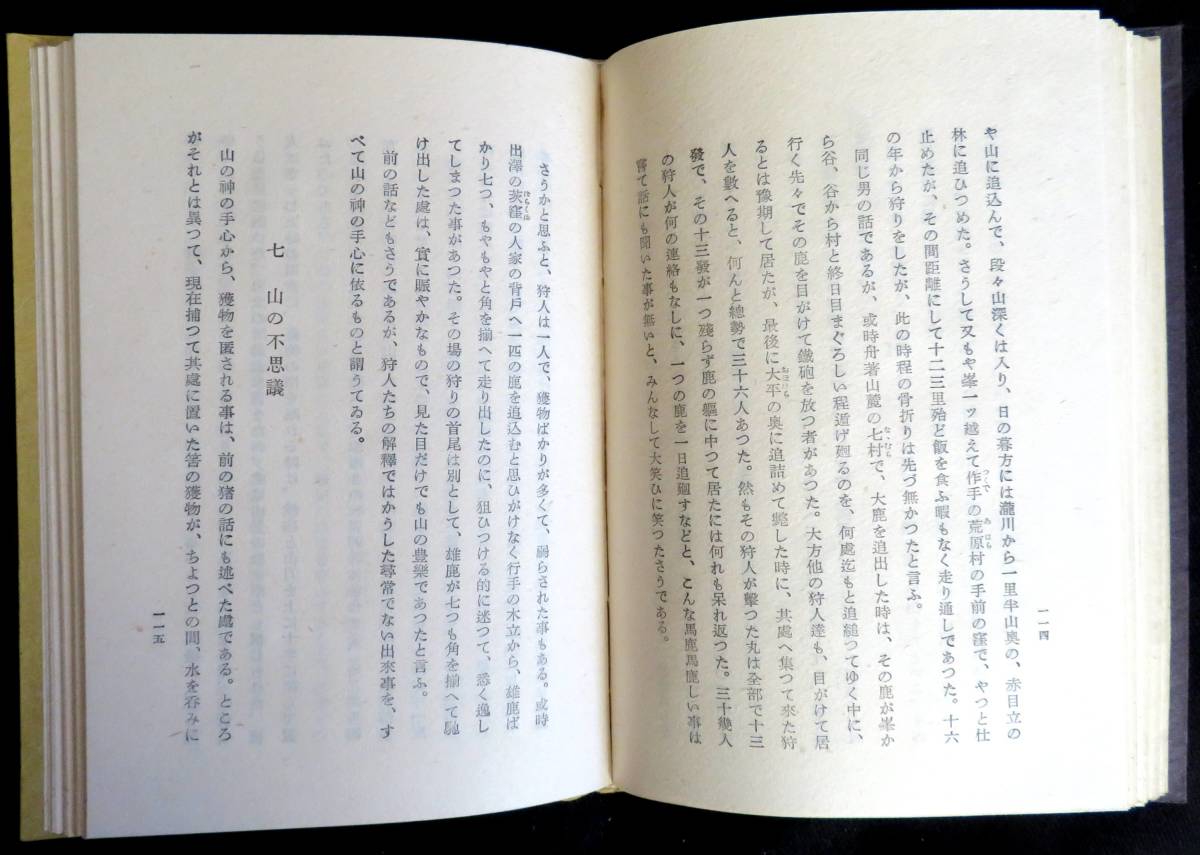 や山に追込んで、段々山深くは入り、日の暮方には瀧川から一里半山奥の、赤目立の
林に追ひつめた。さうして又もや峯一ッ越えて作手の荒原村の手前の窪で、やつと仕
止めたが、その間距離にして十二三里殆ど飯を食ふ暇もなく走り通しであつた。十六
の年から狩りをしたが、此の時程の骨折りは先づ無かつたと言ふ。
同じ男の話であるが、或時舟著山麓の七村で、大鹿を追出した時は、その鹿が峯か
ら谷、谷から村と終日目まぐろしい程遁げ廻るのを、何處迄もと追縋つてゆく中に、
行く先々でその鹿を目がけて鐵砲を放つ者があつた。大方他の狩人達も、目がけて居
るとは豫期して居たが、最後に大平の奥に追詰めて斃した時に、其處へ集つて來た狩
人を數へると、何んと總勢で三十六人あつた。然もその狩人が擊つた丸は全部で十三
發で、その十三發が一つ殘らず鹿の軀に中つて居たには何れも呆れ返つた。三十幾人
の狩人が何の連絡もなしに、一つの鹿を一日追廻すなどと、こんな馬鹿馬鹿しい事は
嘗て話にも聞いた事が無いと、みんなして大笑ひに笑つたさうである。
一一四
さうかと思ふと、狩人は一人で、獲物ばかりが多くて、弱らされた事もある。或時
出澤の茨窪の人家の背戸へ一匹の鹿を追込むと思ひがけなく行手の木立から、雄鹿ば
かり七つ、もやもやと角を揃へて走り出したのに、狙ひつける的に迷つて、悉く逸し
てしまつた事があつた。その場の狩りの首尾は別として、雄鹿が七つも角を揃へて馳
け出した處は、實に賑やかなもので、見た目だけでも山の豊樂であつたと言ふ。
前の話などもさうであるが、狩人たちの解釋ではかうした尋常でない出來事を、す
べて山の神の手心に依るものと謂うてゐる。
七 山の不思議
山の神の手心から、獲物を匿される事は、前の猪の話にも述べた處である。ところ
がそれとは異つて、現在捕つて其處に置いた筈の獲物が、ちよつとの間、水を呑みに
一一五